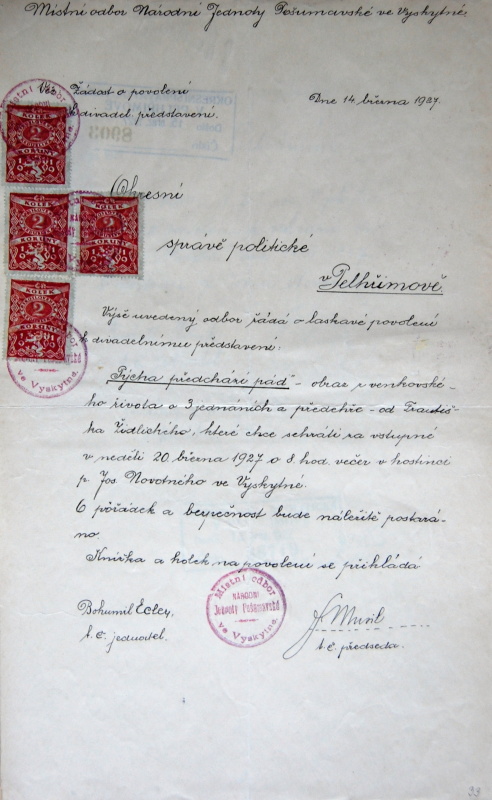 Místní odbor Národní Jednoty Pošumavské ve Vyskytné.
Věc Žádost o povolení
k divadel. představení.
Dne 14 března 1927.
8903
Okresní
správě politické
v Pelhřimově.
Výše uvedený odbor žádá o laskavé povolení
k divadelnímu představení:
"Pýcha předchází pád" - obraz z venkovské-
ho života o 3 jednáních a předehře - od Františ-
ka Židlického, které chce sehráti za vstupné
v neděli 20 března 1927 o 8. hod. večer v hostinci
p. Jos. Novotného ve Vyskytné.
O pořádek a bezpečnost bude náležitě postará-
no.
Knížka a kolek na povolení se přikládá
Místní odbor
NÁRODNÍ
Jednoty Pošumavské
ve Vyskytné.
Bohumil
t. č. jednatel.
t. č. předseda.
KOLEK
2
KORUNY
KOLEK
2
KORUNY
KOLEK
2
KORUNY
KOLEK
2
KORUNY
Místní odbor
ve Vyskytné.
33